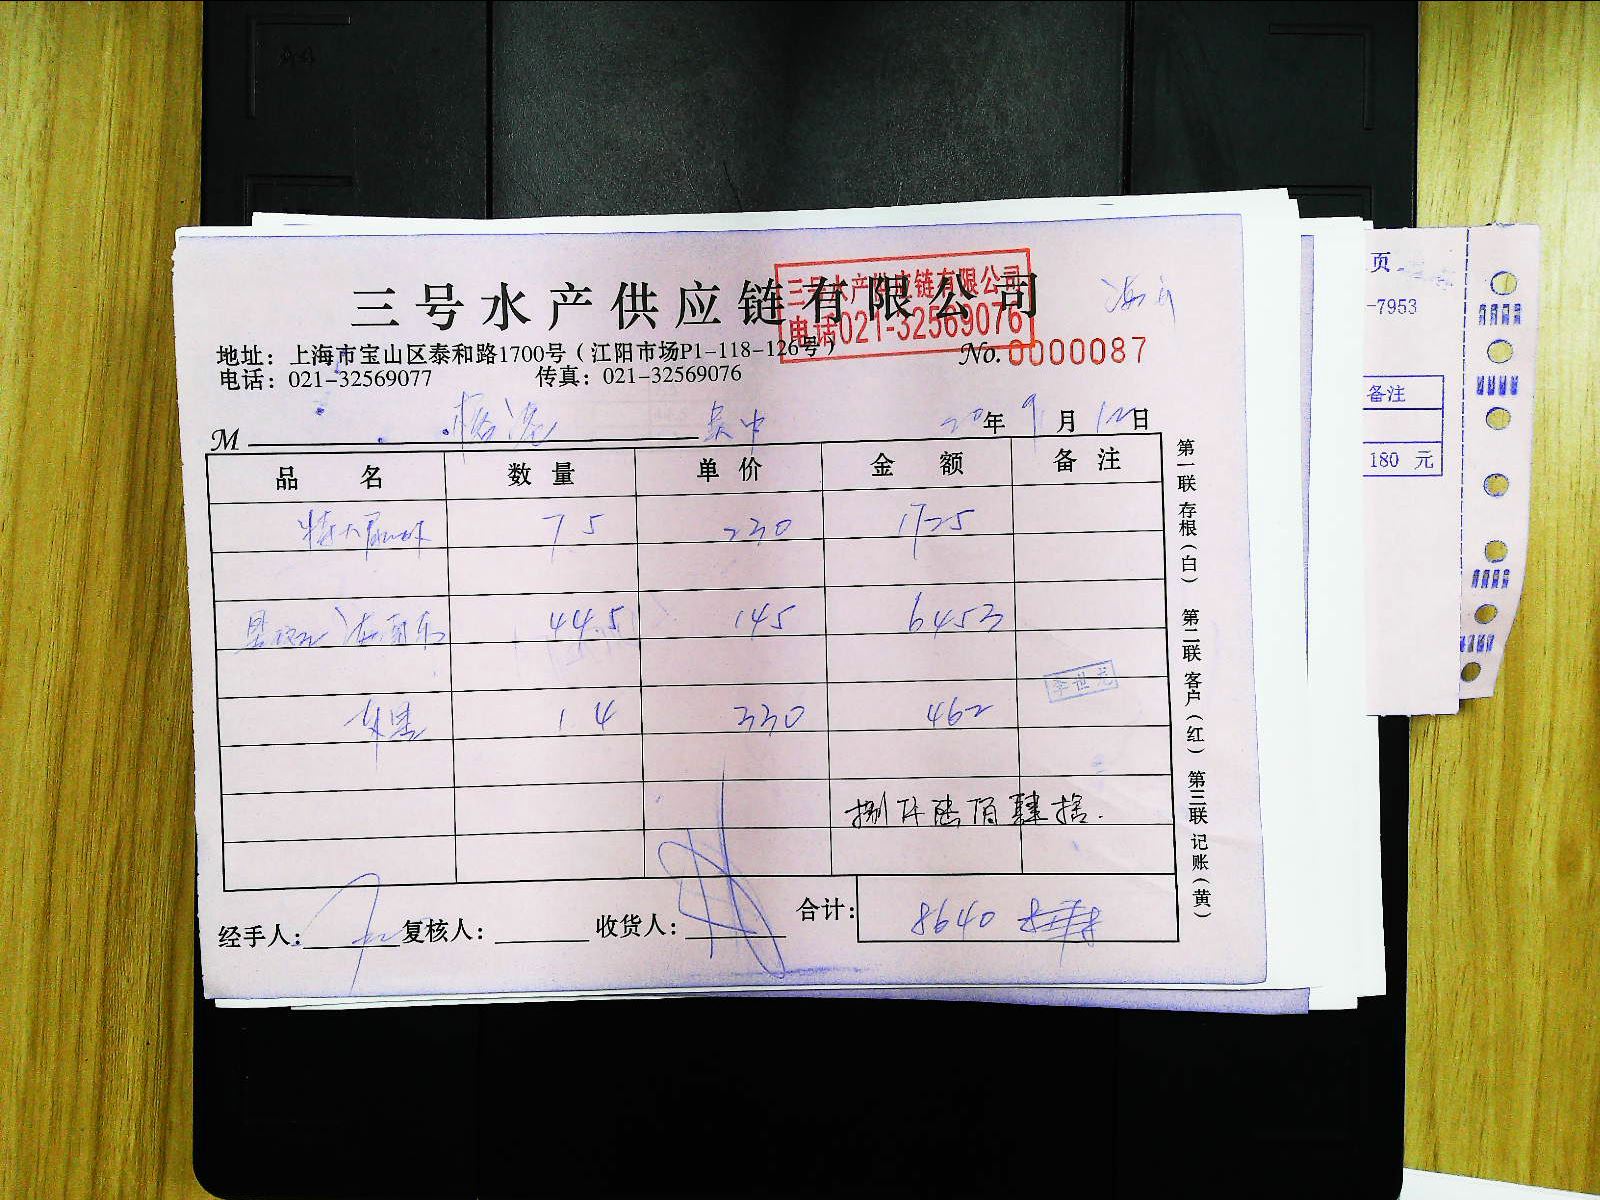 三号水产供应链有限公司
三号水产供应链有限公司
电话021-32569076
地址：上海市宝山区泰和路1700号（江阳市场P1-118-126号）
No.0000087
电话：021-32569077 传真：021-32569076
M 吴中 20年9月12日
品名 数量 单价 金额 备注
特大 75 230 1725
44.5 145 6453
14 330 462
李世龙
捌仟陆佰肆拾.
经手人： 复核人： 收货人： 合计： 8640
第一联存根（白） 第二联客户（红） 第三联记账（黄）
页
-7953
备注
180 元